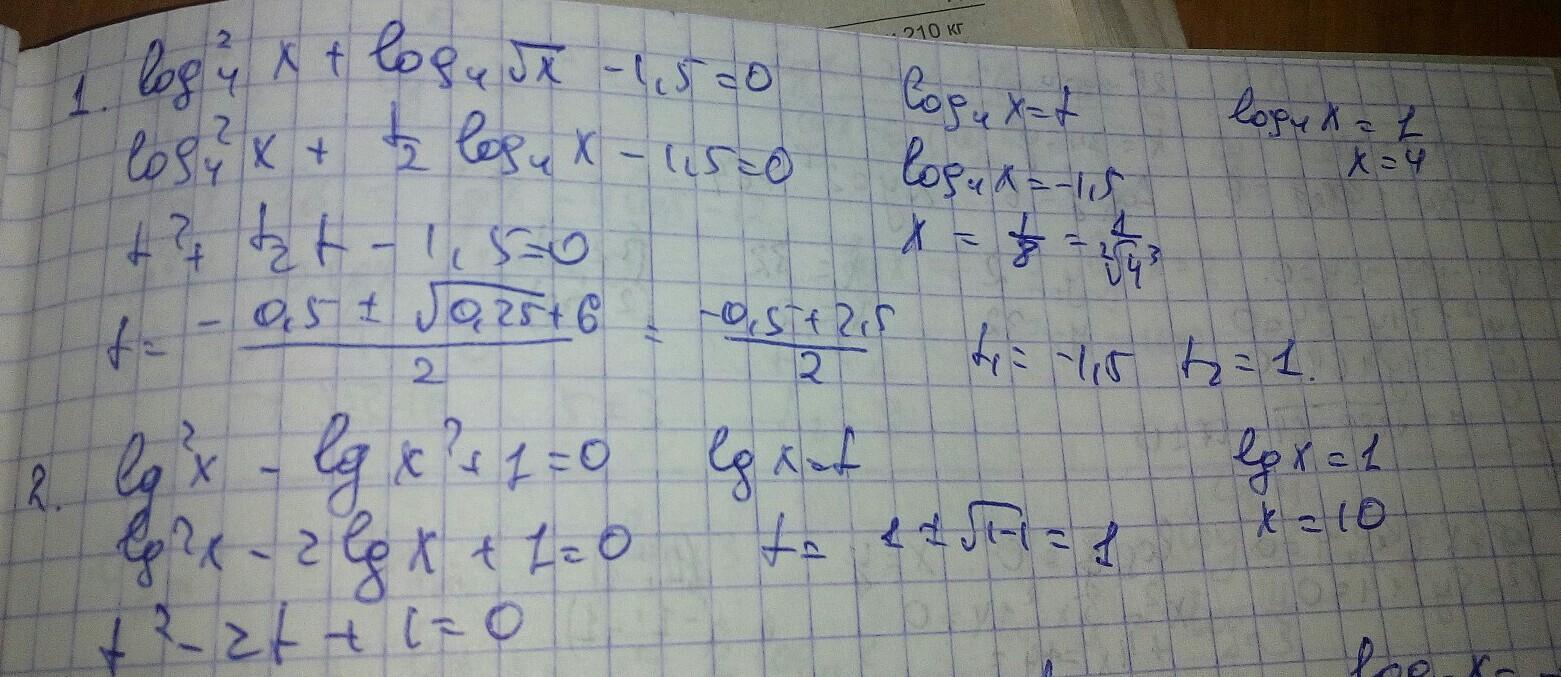 210 кг
1. log₄² x + log₄ √x - 1,5 = 0
log₄² x + 1/2 log₄ x - 1,5 = 0
t² + 1/2 t - 1,5 = 0
t = - 0,5 ± √(0,25 + 6) / 2 = -0,5 + 2,5 / 2
log₄ x = t
log₄ x = -1,5
x = 1/8 = 1/²√4³
log₄ x = 1
x = 4
t₁ = -1,5 t₂ = 1.
2. lg² x - lg x² + 1 = 0
lg² x - 2 lg x + 1 = 0
t² - 2t + 1 = 0
lg x = t
t = 1 ± √1-1 = 1
lg x = 1
x = 10